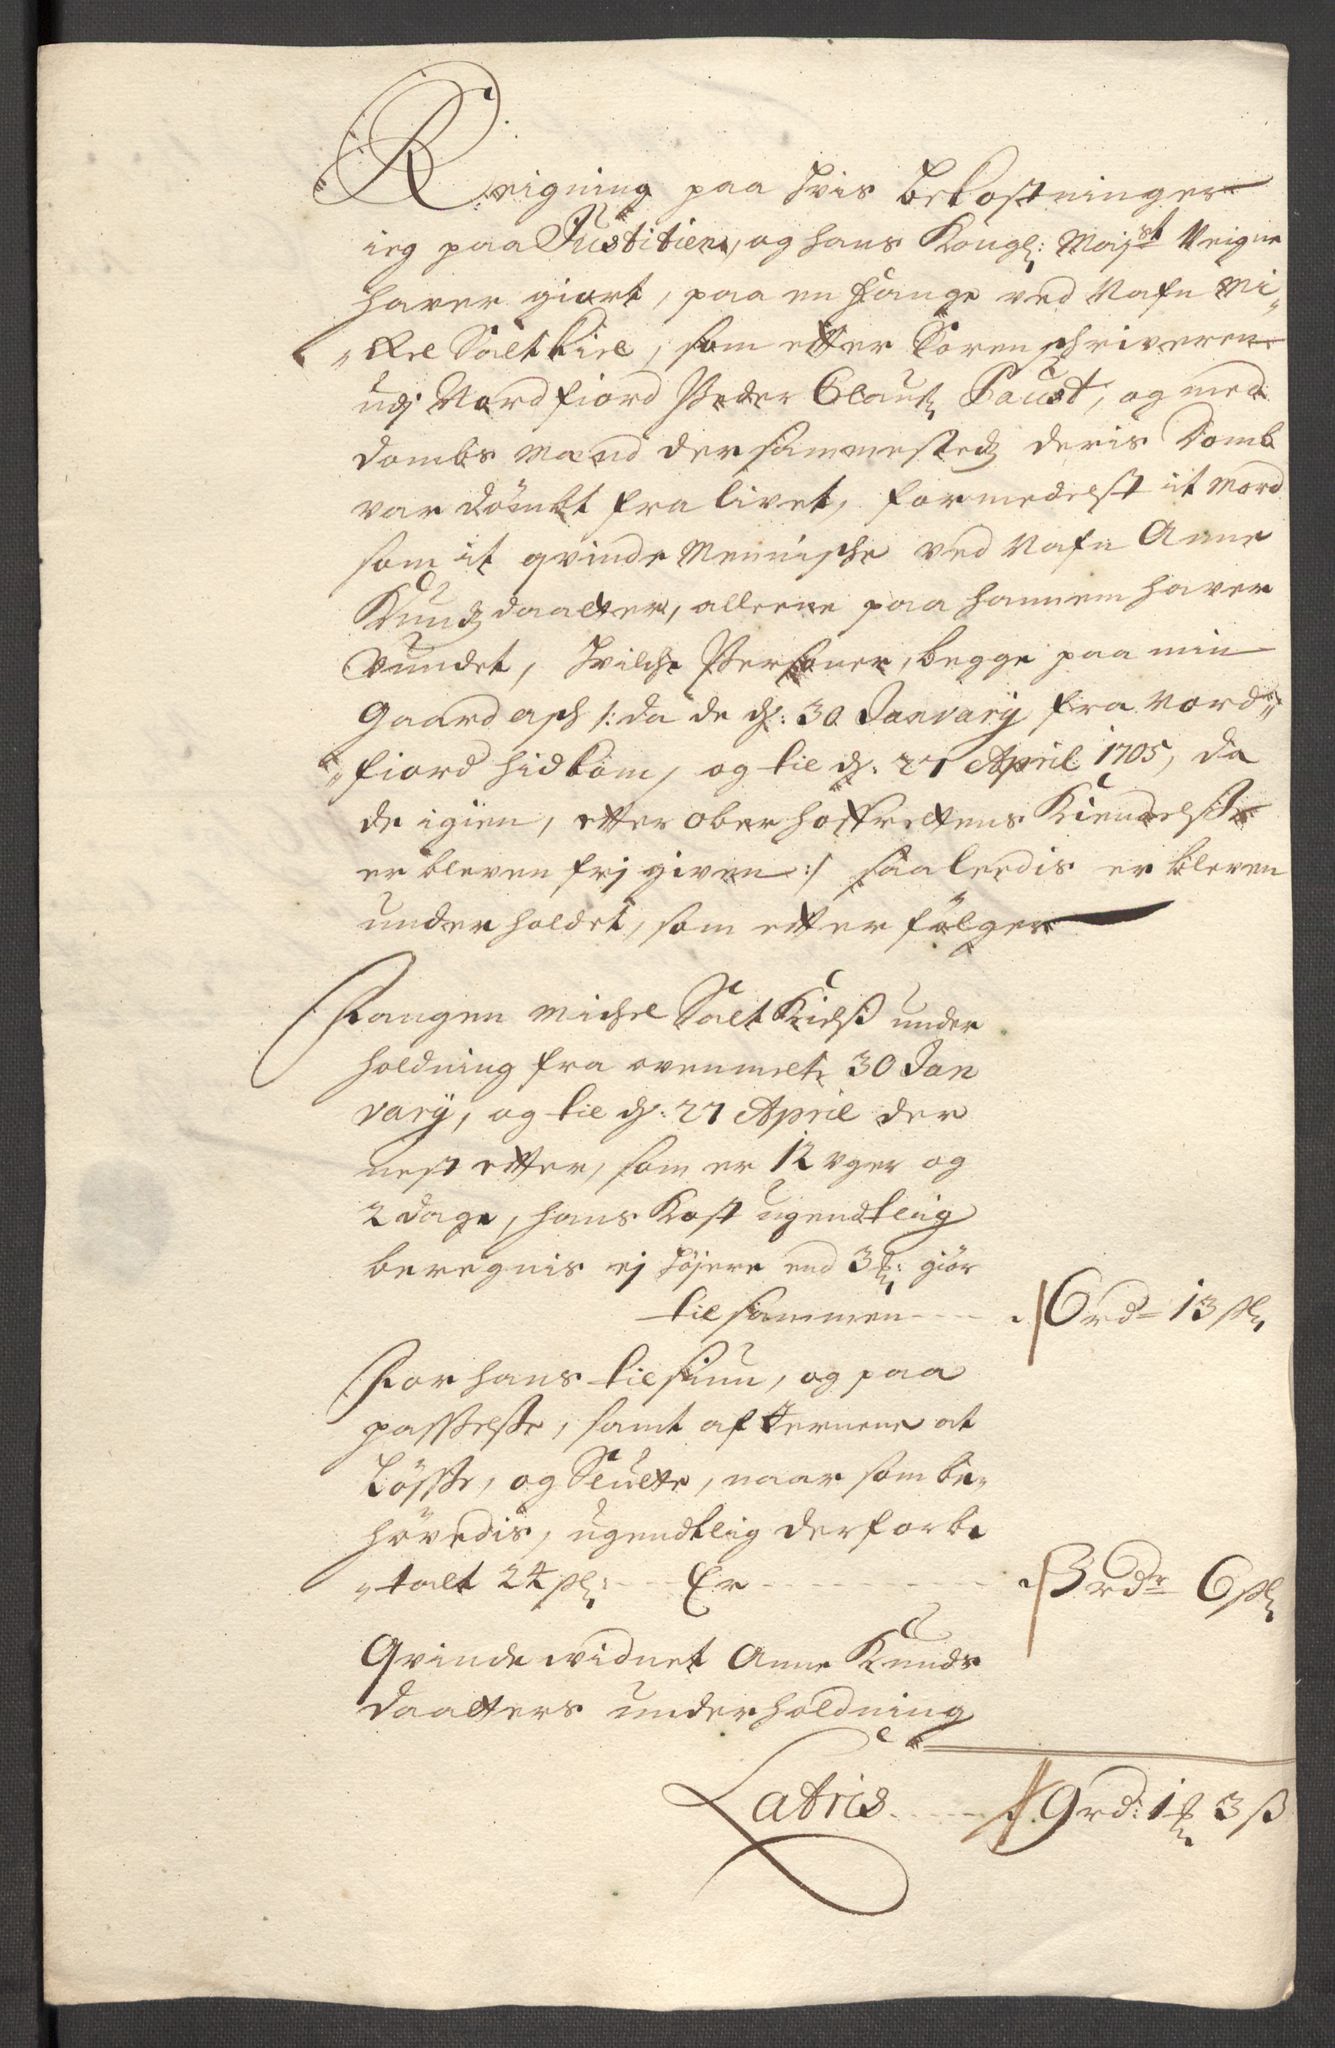 Reigning paa Hvis bekostninger
ieg paa Justitiens, og hans Kongl: Mayst Veigne
haver giort, paa en fange ved Nafn Mi„
„kel Saltkiel, som etter Sorenschriveren
udj Nordfiord Peder Clauß Faust, og med
dombs mænd dersammestedz deris domb
var dömbt fra livet, formedelst it mord
som it qvinde Mennische ved Nafn Anne
Knudzdaatter, alleene paa hannem haver
vundet, Hvilche Persohner, begge paa min
Gaard Ask /: da de d: 30 Janvarij fra Nord„
„fiord hidkom, og til d: 27 April 1705, da
de igien, etter oberhoffrettens Kiendelße
er bleven frj given :/ saaleedis er bleven
underholdet, som etterfölger
Fangen Michel Saltkiels under
holdning fra ovenmelte 30 Jan
varij, og til d: 27 April der
nest etter, som er 12 uger og
2 dage, hans Kost ugendtlig
beregnis ej höjere end 3 : giör
tilsammen - - - 6 rd 13 sk
For hans tilsiun, og paa
passelße, samt af Jernene at
Lösse, og Slutte, naar som be„
hövedis, ugendtlig derfor be
„talt 24 sk: - - Er - - - 3 rdr 6 sk
Qvinde widnet Anne Knuds
daatters underholdning
Latris - - - 9 rd: 1 3 ß